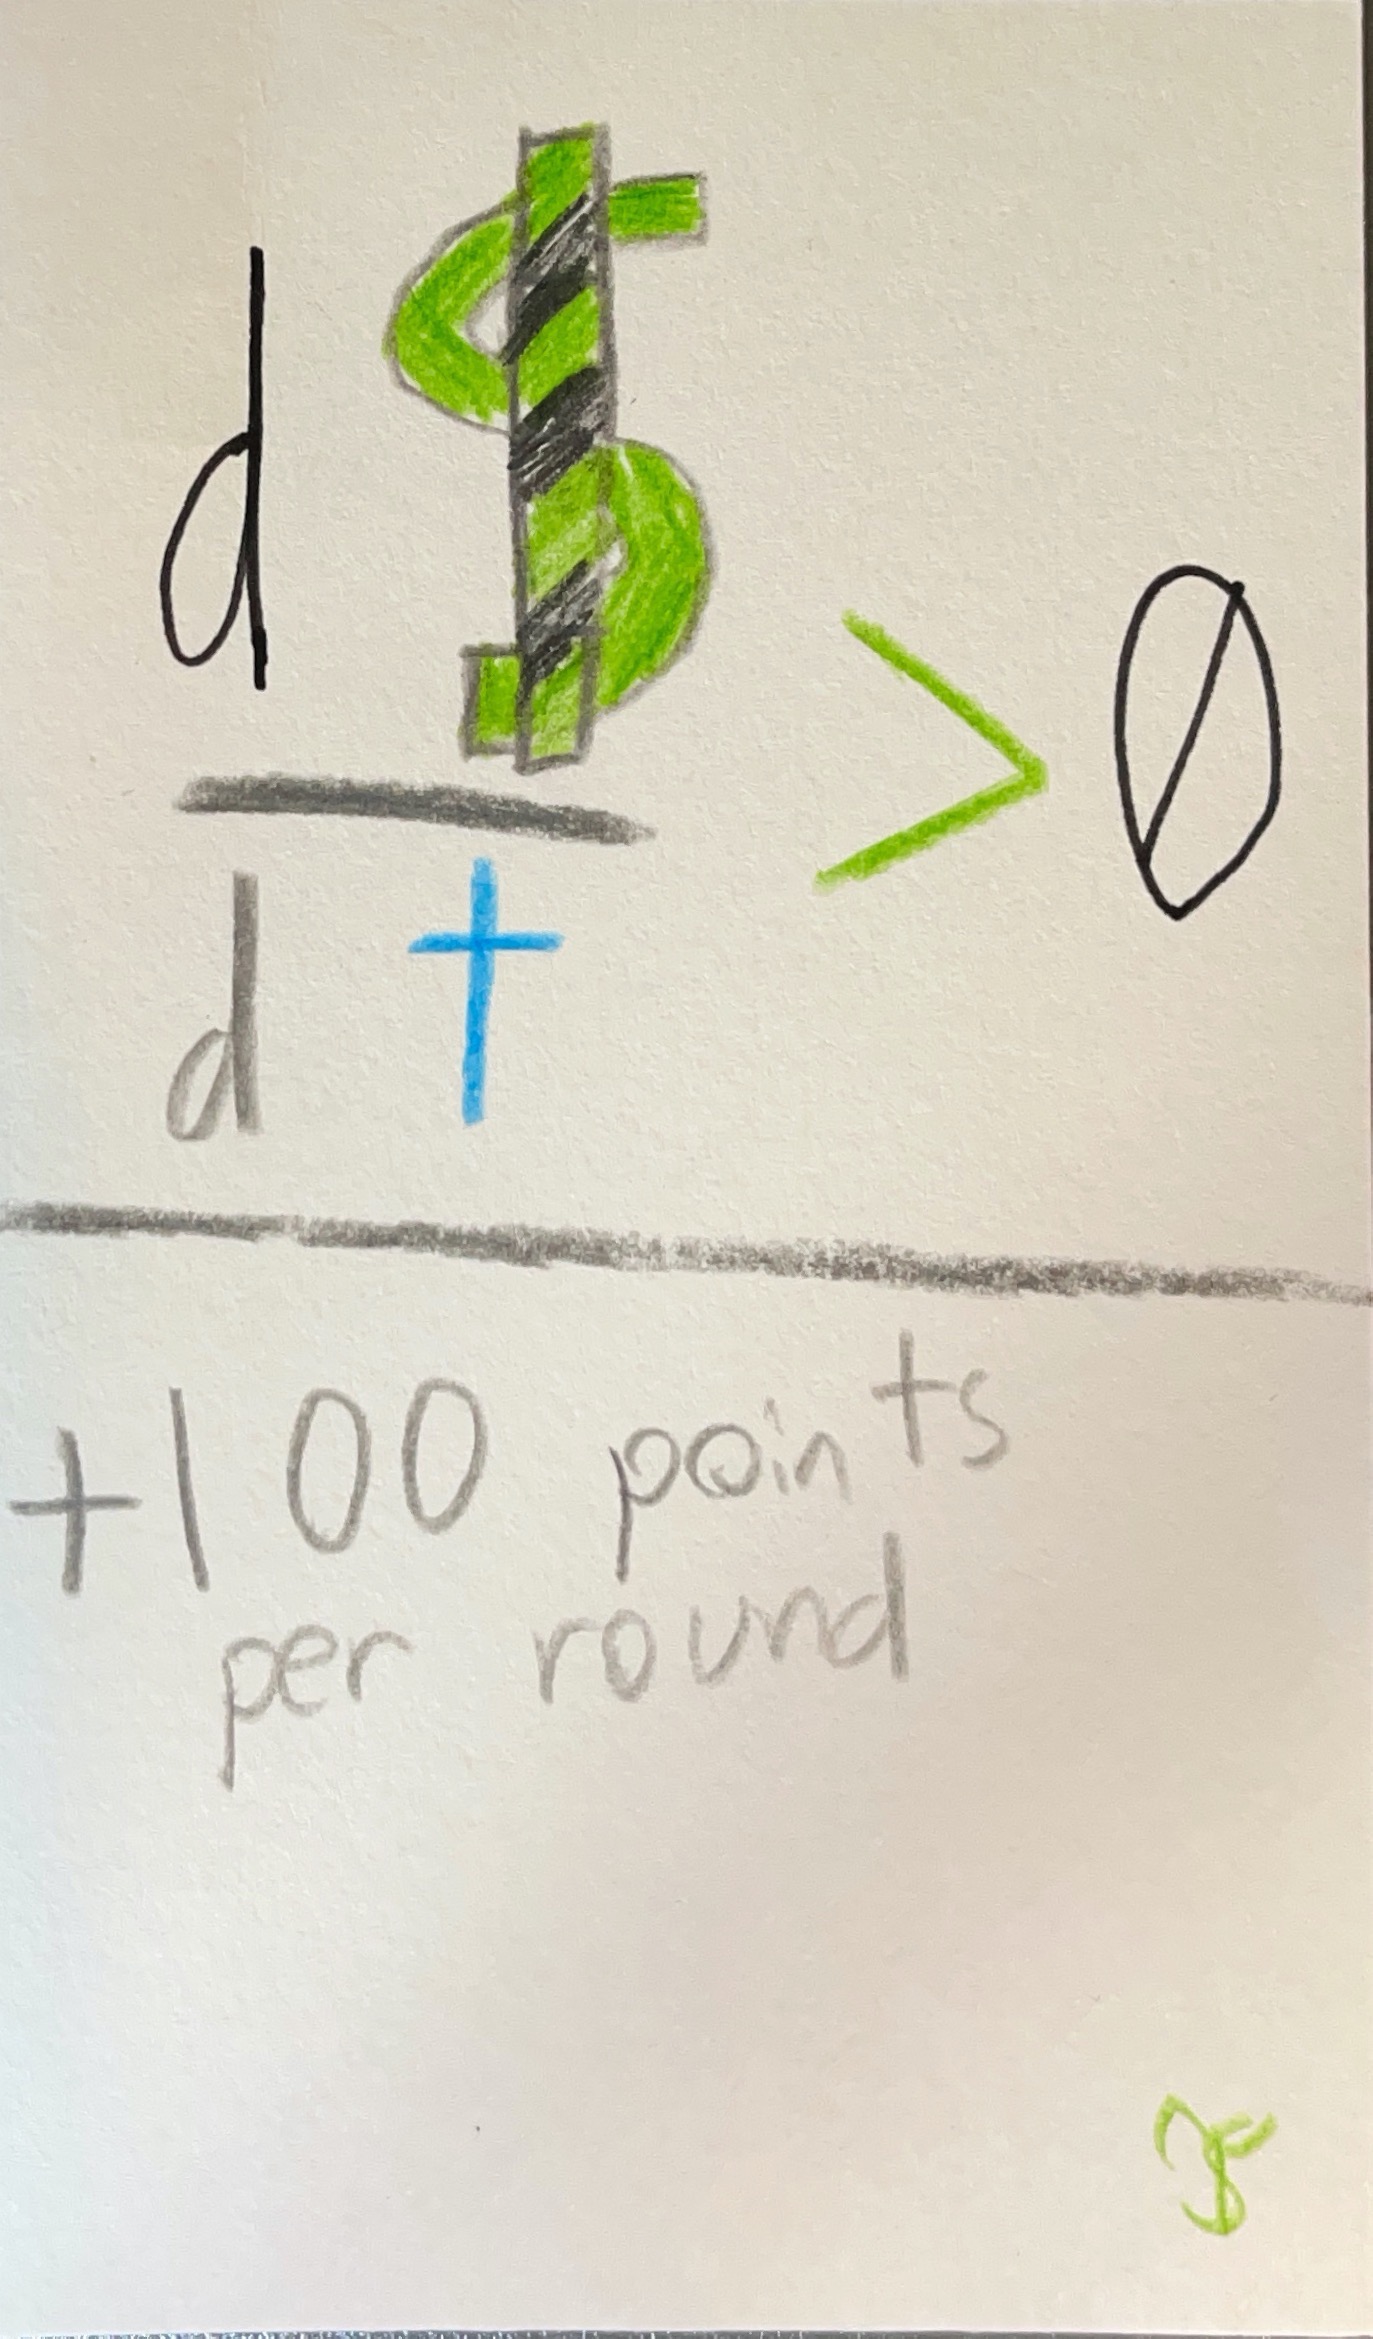 d $ > 0
d t
+100 points
per round